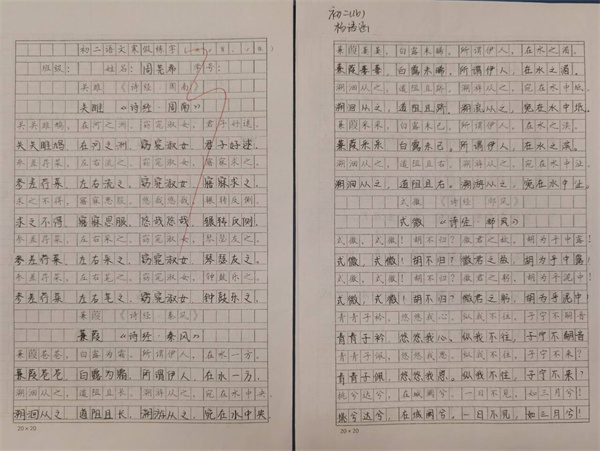 初二语文寒假练字
班级： 姓名：周芸希 学号：
关雎 《诗经·周南》
关雎 《诗经·周南》
关关雎鸠，在河之洲。窈窕淑女，君子好逑。
关关雎鸠 在河之洲 窈窕淑女 君子好逑。
参差荇菜，左右流之。窈窕淑女，寤寐求之。
参差荇菜 左右流之。窈窕淑女，寤寐求之。
求之不得，寤寐思服。悠哉悠哉，辗转反侧。
求之不得，寤寐思服 悠哉悠哉，辗转反侧。
参差荇菜，左右采之。窈窕淑女，琴瑟友之。
参差荇菜 左右采之。窈窕淑女 琴瑟友之。
参差荇菜，左右芼之。窈窕淑女，钟鼓乐之。
参差荇菜 左右芼之。窈窕淑女 钟鼓乐之。
蒹葭 《诗经·秦风》
蒹葭 《诗经·秦风》
蒹葭苍苍，白露为霜。所谓伊人，在水一方。
蒹葭苍苍。白露为霜。所谓伊人，在水一方。
溯洄从之，道阻且长。溯游从之，宛在水中央。
溯洄从之，道阻且长，溯游从之，宛在水中央
20×20
初二(6)
杨语涵
蒹葭萋萋，白露未晞。所谓伊人，在水之湄。
蒹葭萋萋，白露未晞，所谓伊人，在水之湄。
溯洄从之，道阻且跻。溯游从之，宛在水中坻。
溯洄从之，道阻且跻。溯游从之，宛在水中坻
蒹葭采采，白露未已。所谓伊人，在水之涘。
蒹葭采采 白露未已。所谓伊人，在水之涘。
溯洄从之，道阻且右。溯游从之，宛在水中沚
溯洄从之，道阻且右。溯游从之，宛在水中沚。
式微 《诗经·邶风》
式微 《诗经 邶风》
式微，式微！胡不归？微君之故，胡为乎中露！
式微，式微！胡不归？微君之故，胡为乎中露！
式微，式微！胡不归？微君之躬，胡为乎泥中！
式微，式微！胡不归？微君之躬，胡为乎泥中！
青青子衿，悠悠我心。纵我不往，子宁不嗣音
青青子衿，悠悠我心。纵我不往，子宁不嗣音
青青子佩，悠悠我思。纵我不往，子宁不来？
青青子佩，悠悠我思。纵我不往，子宁不来！
挑兮达兮，在城阙兮。一日不见，如三月兮！
挑兮达兮，在城阙兮。一日不见，如三月兮！
20×20